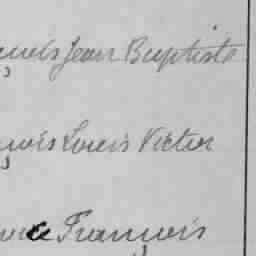 Jean Baptiste
Louis Victor
François